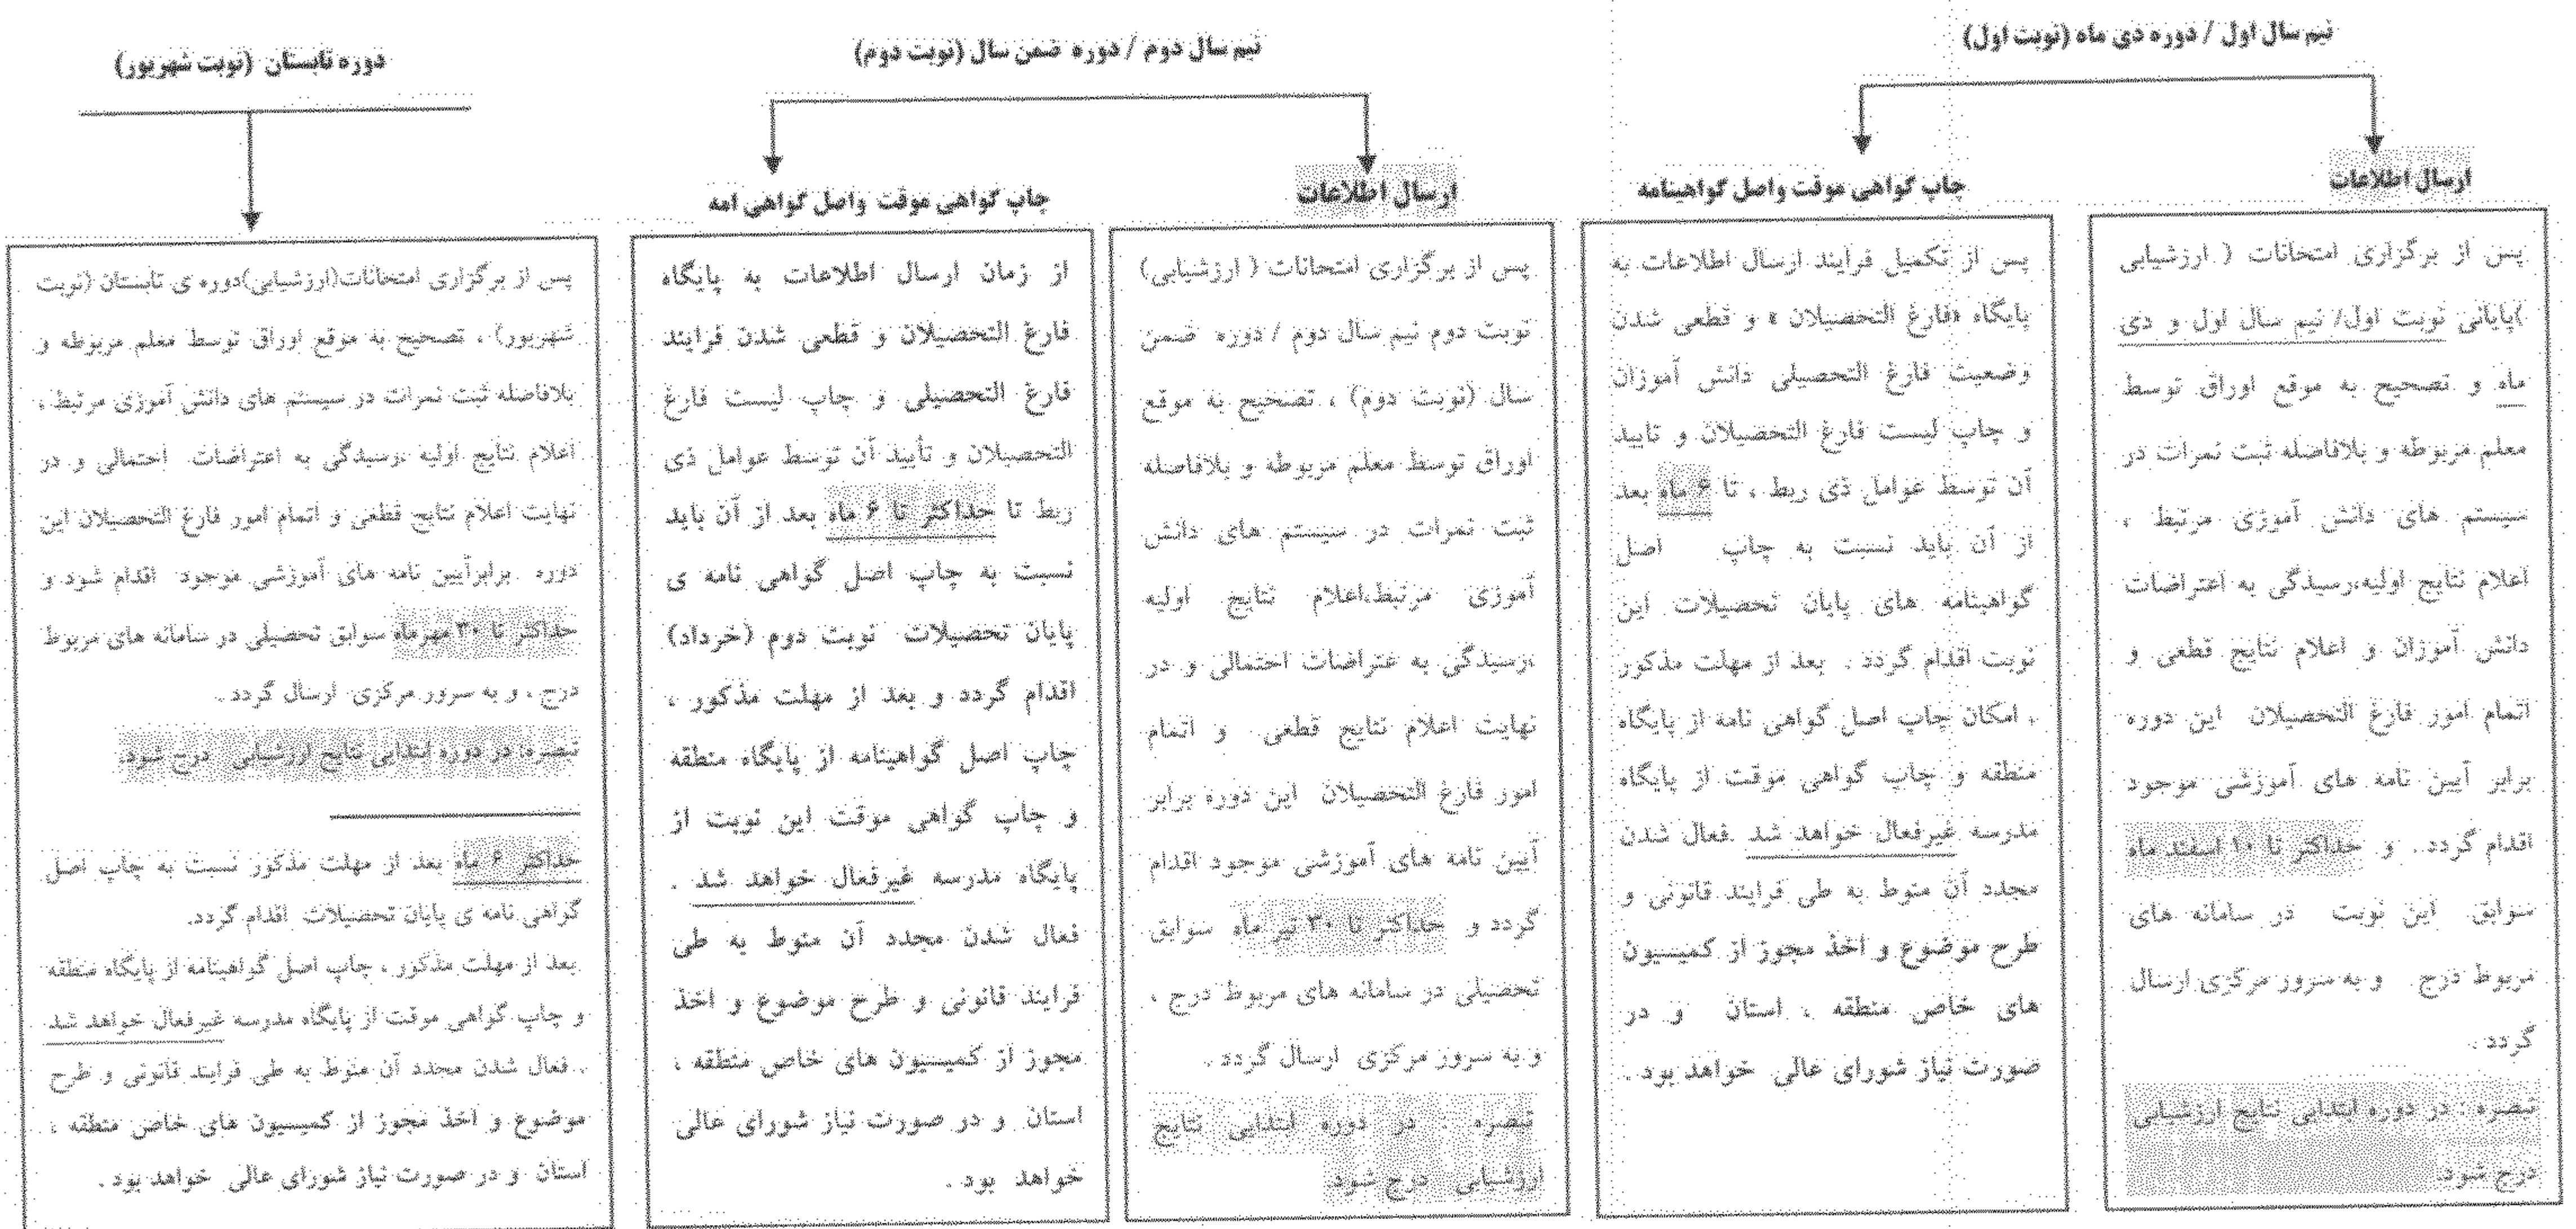 نیم سال اول / دوره دی ماه (نوبت اول)
ارسال اطلاعات
پس از برگزاری امتحانات ( ارزشیابی
)پایانی نوبت اول/ نیم سال اول و دی
ماه و تصحیح به موقع اوراق توسط
معلم مربوطه و بلافاصله ثبت نمرات در
سیستم های دانش آموزی مرتبط ،
اعلام نتایج اولیه،رسیدگی به اعتراضات
دانش آموزان و اعلام نتایج قطعی و
اتمام امور فارغ التحصیلان این دوره
برابر آیین نامه های آموزشی موجود
اقدام گردد . و حداکثر تا ۱۰ اسفند ماه
سوابق این نوبت در سامانه های
مربوط درج و به سرور مرکزی ارسال
گردد .
تبصره : در دوره ابتدایی نتایج ارزشیابی
درج شود.
چاپ گواهی موقت واصل گواهینامه
پس از تکمیل فرایند ارسال اطلاعات به
پایگاه «فارغ التحصیلان » و قطعی شدن
وضعیت فارغ التحصیلی دانش آموزان
و چاپ لیست فارغ التحصیلان و تایید
آن توسط عوامل ذی ربط ، تا ۶ ماه بعد
از آن باید نسبت به چاپ اصل
گواهینامه های پایان تحصیلات این
نوبت اقدام گردد . بعد از مهلت مذکور
، امکان چاپ اصل گواهی نامه از پایگاه
منطقه و چاپ گواهی موقت از پایگاه
مدرسه غیرفعال خواهد شد .فعال شدن
مجدد آن منوط به طی فرایند قانونی و
طرح موضوع و اخذ مجوز از کمیسیون
های خاص منطقه ، استان و در
صورت نیاز شورای عالی خواهد بود .
نیم سال دوم / دوره ضمن سال (نوبت دوم)
ارسال اطلاعات
پس از برگزاری امتحانات ( ارزشیابی)
نوبت دوم نیم سال دوم / دوره ضمن
سال (نوبت دوم) ، تصحیح به موقع
اوراق توسط معلم مربوطه و بلافاصله
ثبت نمرات در سیستم های دانش
آموزی مرتبط،اعلام نتایج اولیه
،رسیدگی به عتراضات احتمالی و در
نهایت اعلام نتایج قطعی و اتمام
امور فارغ التحصیلان این دوره برابر
آیین نامه های آموزشی موجود اقدام
گردد و حداکثر تا ۳۰ تیر ماه سوابق
تحصیلی در سامانه های مربوط درج ،
و به سرور مرکزی ارسال گردد .
تبصره : در دوره ابتدایی نتایج
ارزشیابی درج شود.
چاپ گواهی موقت واصل گواهی امه
از زمان ارسال اطلاعات به پایگاه
فارغ التحصیلان و قطعی شدن فرایند
فارغ التحصیلی و چاپ لیست فارغ
التحصیلان و تأیید آن توسط عوامل ذی
ربط تا حداکثر تا ۶ ماه بعد از آن باید
نسبت به چاپ اصل گواهی نامه ی
پایان تحصیلات نوبت دوم (خرداد)
اقدام گردد و بعد از مهلت مذکور ،
چاپ اصل گواهینامه از پایگاه منطقه
و چاپ گواهی موقت این نوبت از
پایگاه مدرسه غیرفعال خواهد شد .
فعال شدن مجدد آن منوط به طی
فرایند قانونی و طرح موضوع و اخذ
مجوز از کمیسیون های خاص منطقه ،
استان و در صورت نیاز شورای عالی
خواهد بود .
دوره تابستان (نوبت شهریور)
پس از برگزاری امتحانات(ارزشیابی)دوره ی تابستان (نوبت
شهریور) ، تصحیح به موقع اوراق توسط معلم مربوطه و
بلافاصله ثبت نمرات در سیستم های دانش آموزی مرتبط ،
اعلام نتایج اولیه ،رسیدگی به اعتراضات احتمالی و در
نهایت اعلام نتایج قطعی و اتمام امور فارغ التحصیلان این
دوره برابرآیین نامه های آموزشی موجود اقدام شود و
حداکثر تا ۳۰ مهرماه سوابق تحصیلی در سامانه های مربوط
درج ، و به سرور مرکزی ارسال گردد .
تبصره: در دوره ابتدایی نتایج ارزشیابی درج شود.
حداکثر ۶ ماه بعد از مهلت مذکور نسبت به چاپ اصل
گواهی نامه ی پایان تحصیلات اقدام گردد.
بعد از مهلت مذکور ، چاپ اصل گواهینامه از پایگاه منطقه
و چاپ گواهی موقت از پایگاه مدرسه غیرفعال خواهد شد
. فعال شدن مجدد آن منوط به طی فرایند قانونی و طرح
موضوع و اخذ مجوز از کمیسیون های خاص منطقه ،
استان و در صورت نیاز شورای عالی خواهد بود .